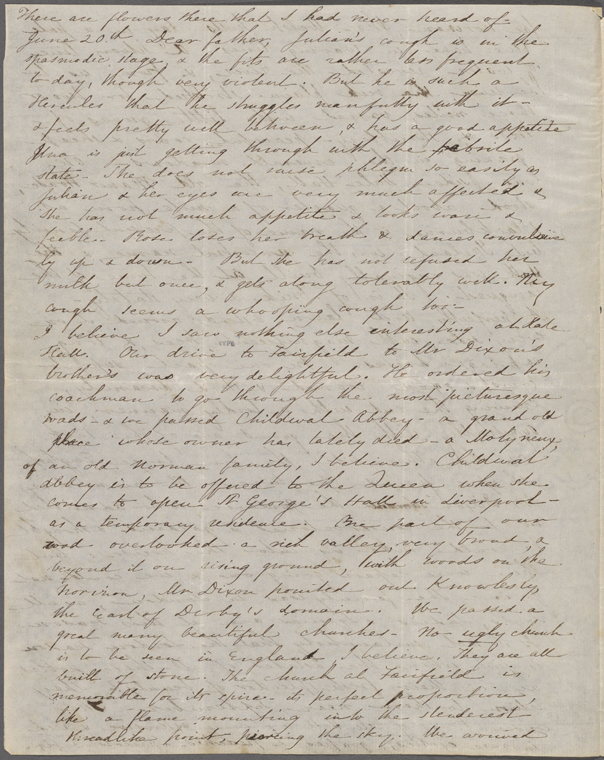 There are flowers there that I had never heard of.
June 20th. Dear father, Julian's cough is in the
spasmodic stage, & the fits are rather less frequent
to day, though very violent. But he is such a
Hercules that he struggles manfully with it -
& feels pretty well between, & has a good appetite
Una is just getting through with the febrile
state. She does not raise phlegm so easily as
Julian & her eyes are very much affected &
She has not much appetite & looks wan &
feeble. Rose loses her breath & dances convulsive
ly up & down - But she has not refused her
milk but once, & gets along tolerably well. My
cough seems a whooping cough too -
I believe I saw nothing else interesting at Hale
Hall. Our drive to Fairfield to Mr Dixon's
brother's was very delightful. He ordered his
coachman to go through the most picturesque
roads - & we passed Childwal Abbey - a grand old
place whose owner has lately died - a Molyneux,
of an old Norman family, I believe. Childwal
Abbey is to be offered to the Queen when she
comes to open St George's Hall in Liverpool -
as a temporary residence. One part of our
road overlooked a rich valley, very broad, &
beyond it on rising ground, with woods on the
horizon, Mr Dixon pointed out Knowlesley,
the Earl of Derby's domain. We passed a
great many beautiful churches - No ugly church
is to be seen in England I believe. They are all
built of stone. The church at Fairfield is
memorable for its spire - its perfect proportion,
like a flame mounting into the slenderest
threadlike point, piercing the sky. We arrived